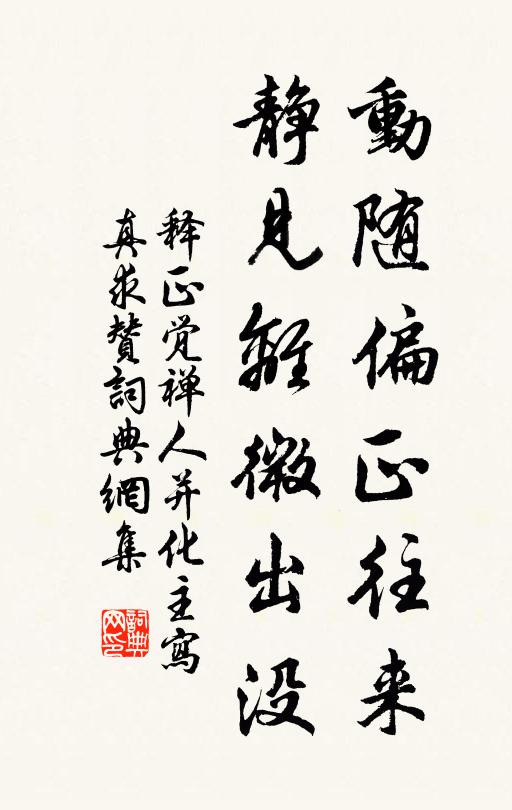 動随偏正往来
静見離微出没
释正觉禅人并化主寫
真求赞詞典網集
詞典
网印